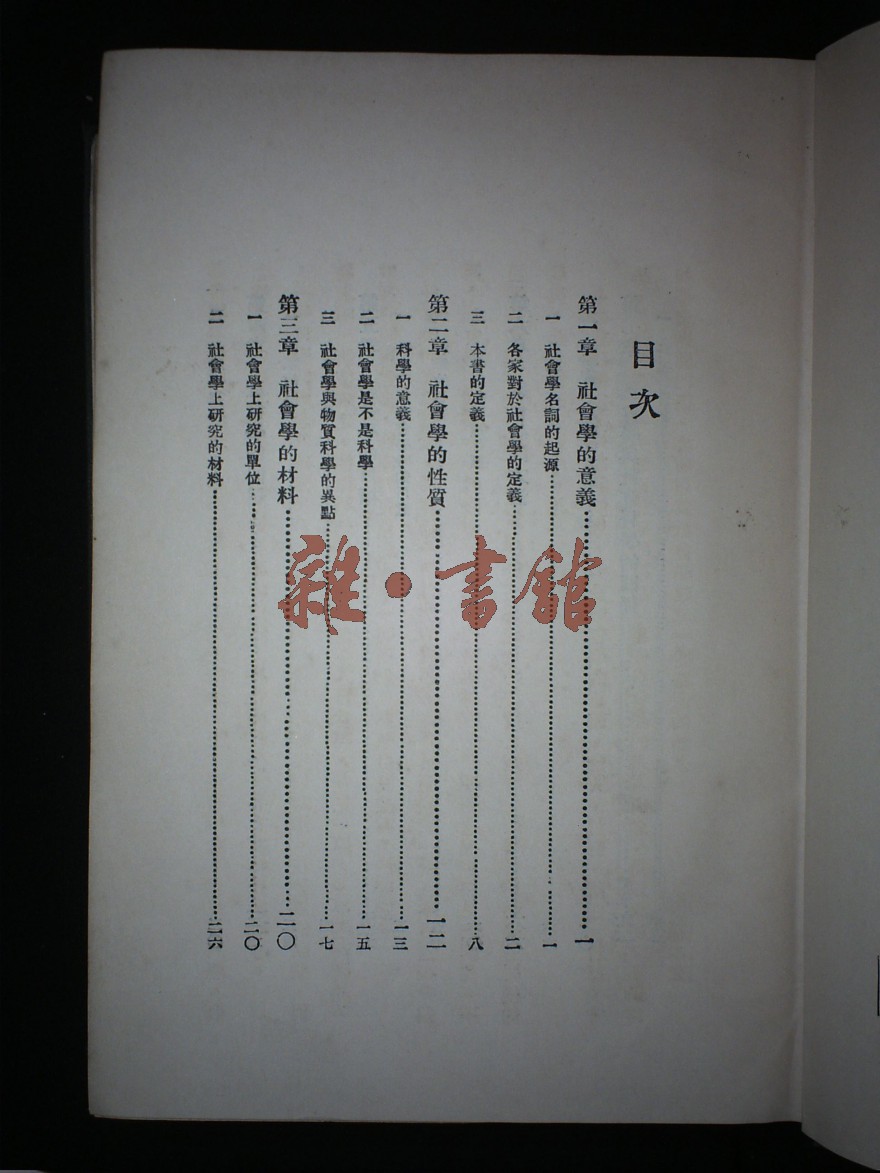 目次
第一章 社會學的意義……………一
一 社會學名詞的起源……………一
二 各家對於社會學的定義……………二
三 本書的定義……………八
第二章 社會學的性質……………一二
一 科學的意義……………一三
二 社會學是不是科學……………一五
三 社會學與物質科學的異點……………一七
第三章 社會學的材料……………二〇
一 社會學上研究的單位……………二〇
二 社會學上研究的材料……………二六
雜·書館